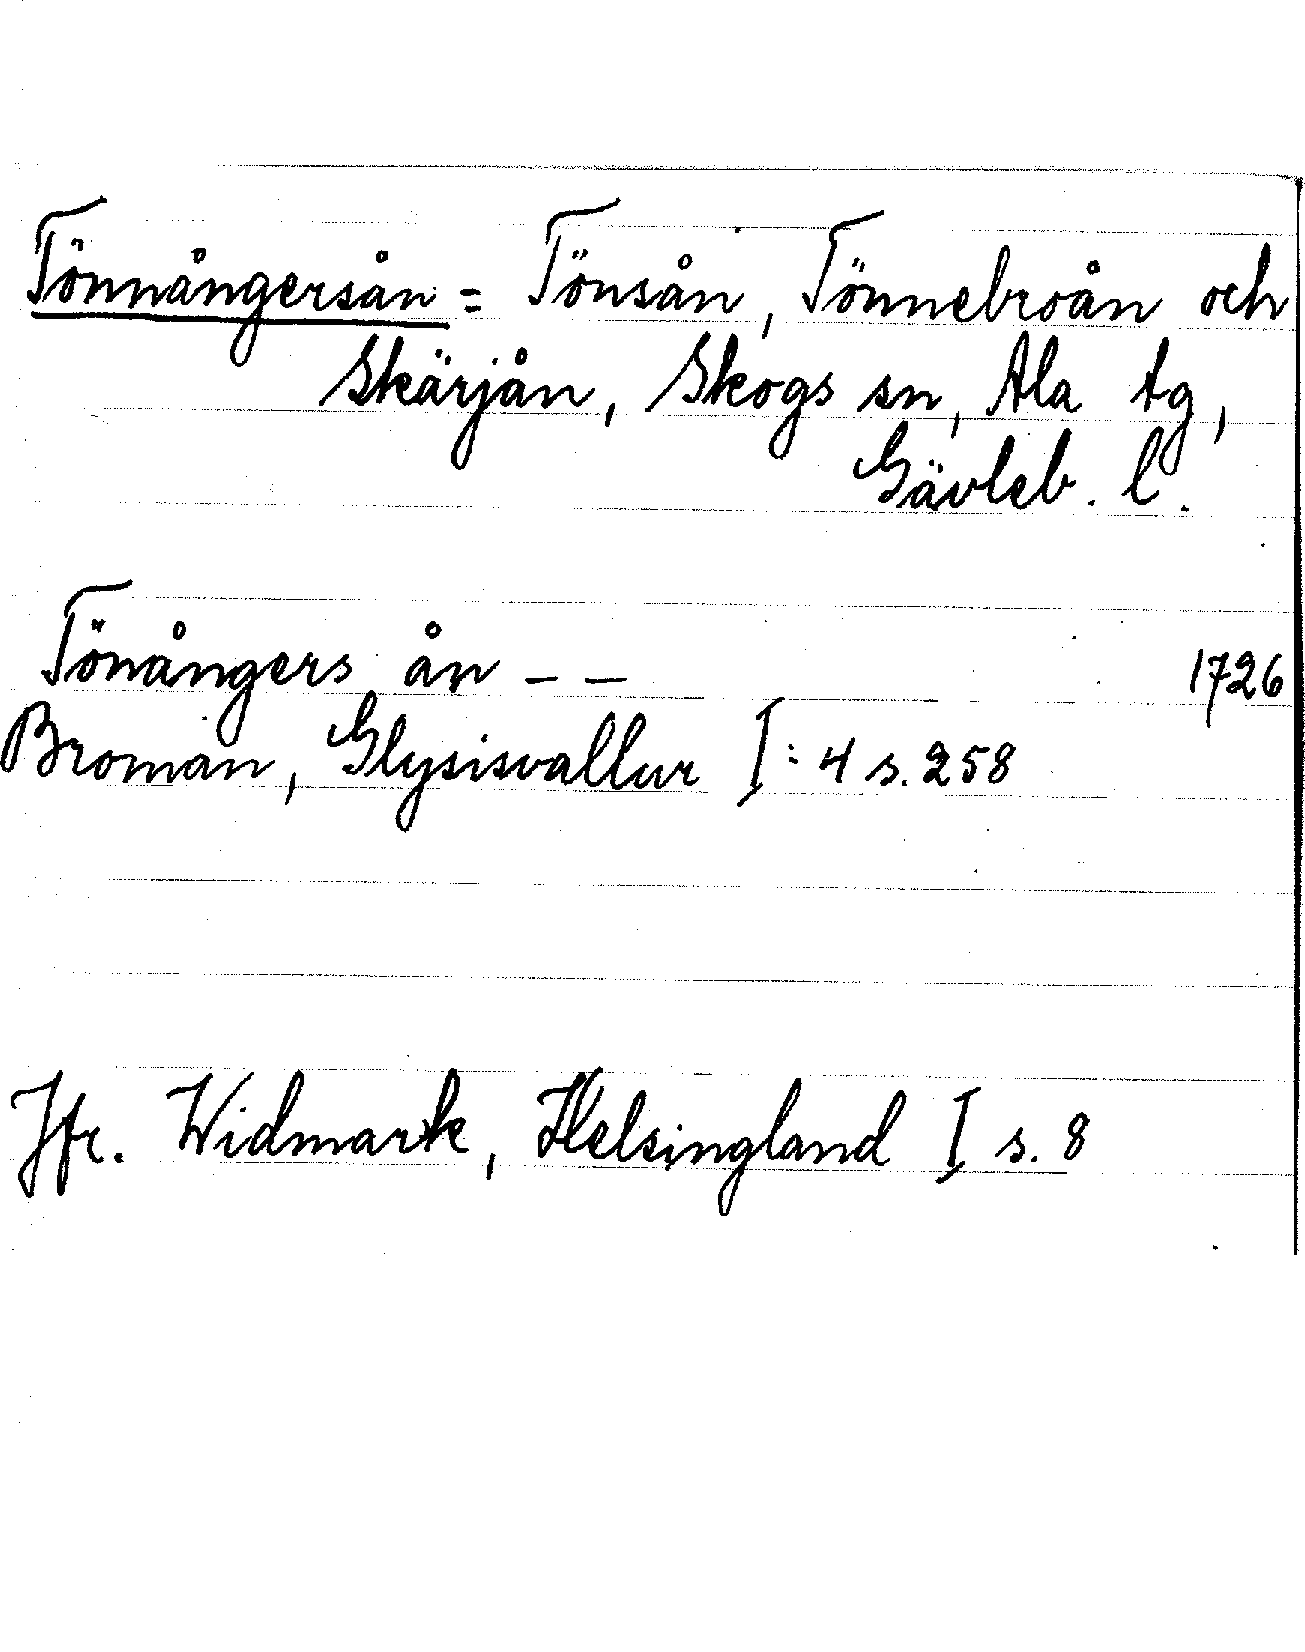 Tönnångersån = Tönsån, Tönnebroån och
Skärjån, Skogs sn, Ala tg,
Gävleb. l.
Tönångers ån – – 1726
Broman, Glysisvallur I:4 s. 258
Jfr. Widmark, Helsingland I s. 8